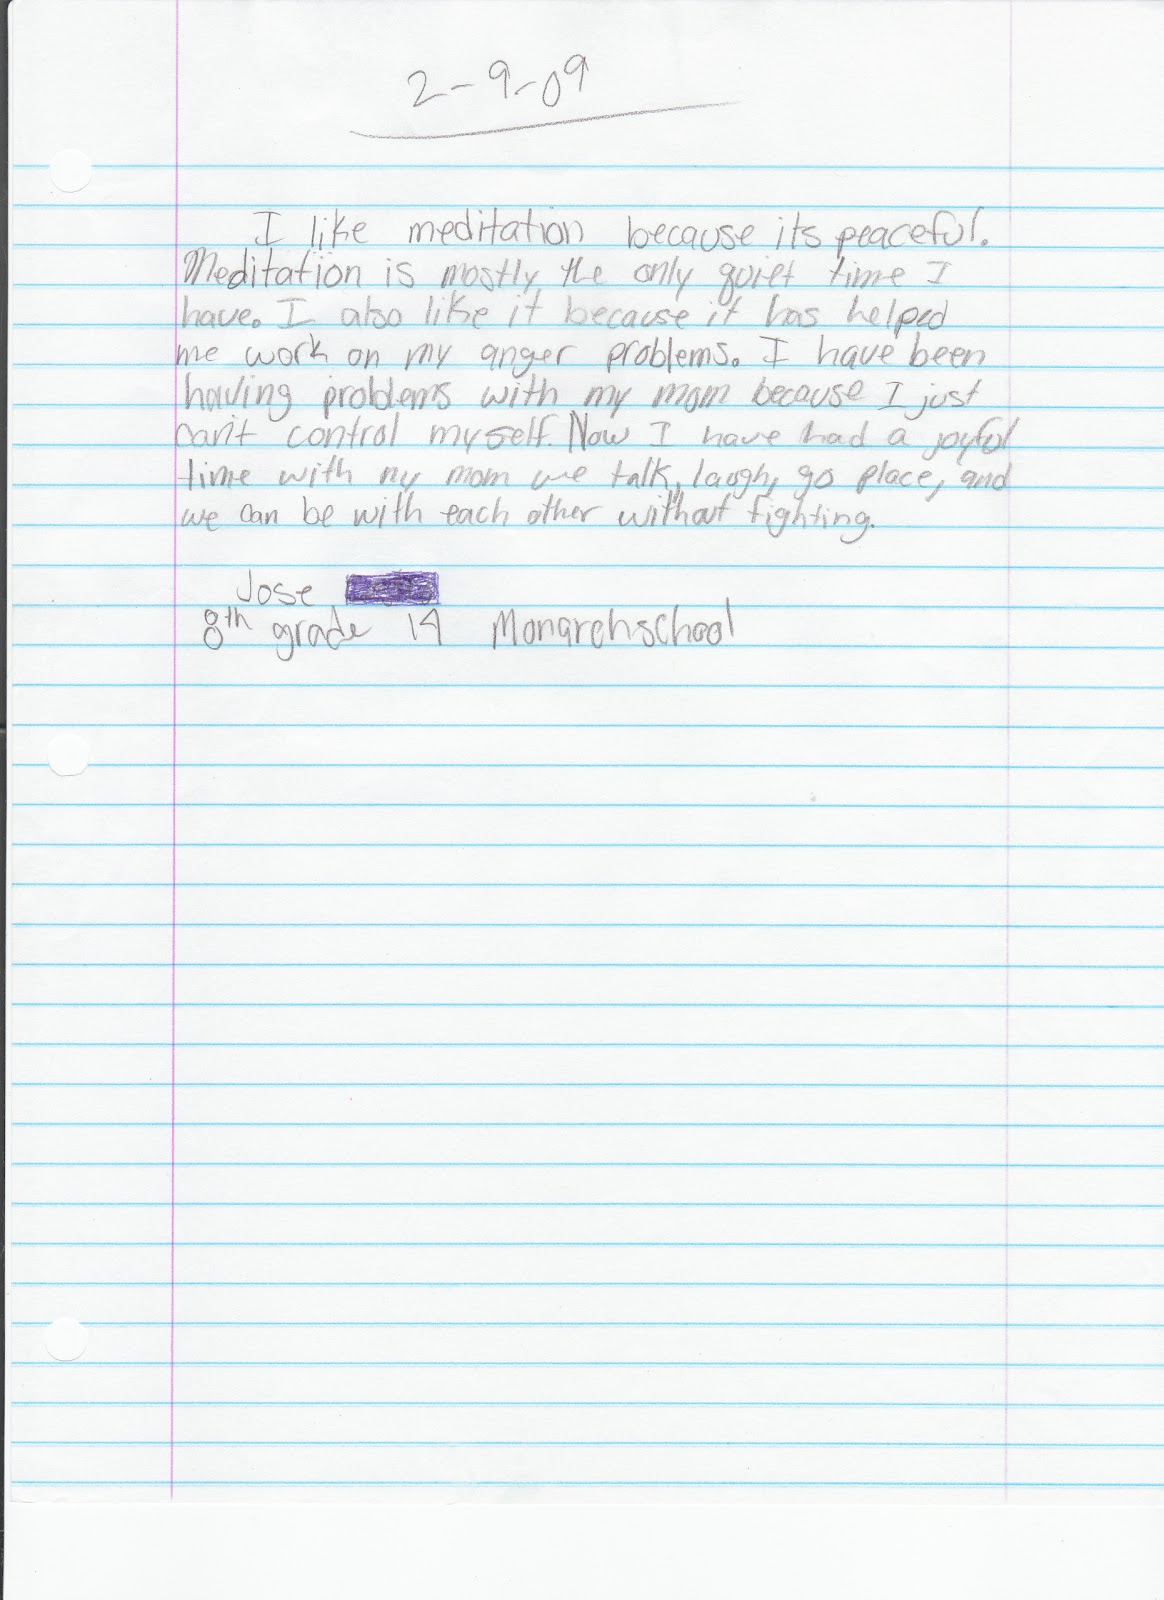 2-9-09
I like meditation because its peaceful.
Meditation is mostly the only quiet time I
have. I also like it because it has helped
me work on my anger problems. I have been
having problems with my mom because I just
can't control myself. Now I have had a joyful
time with my mom we talk, laugh, go place, and
we can be with each other without fighting.
Jose
8th grade 14 Monarchschool